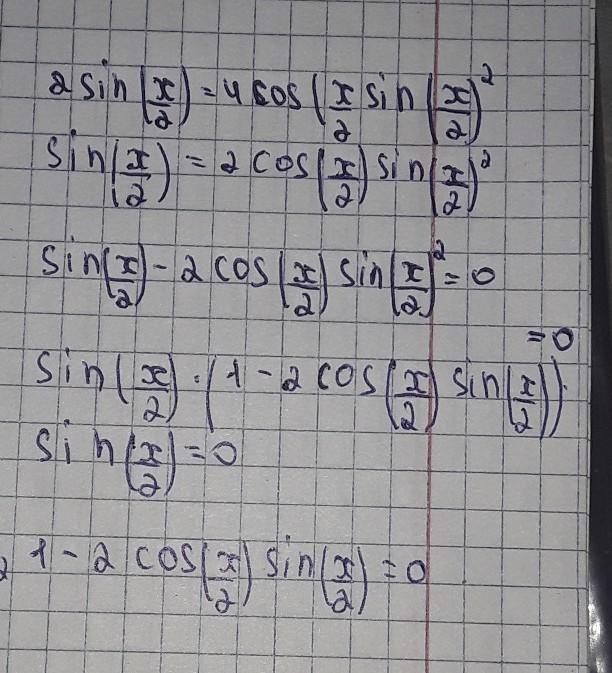 2 sin(x/2) = 4 cos(x/2 sin(x/2)²
sin(x/2) = 2 cos(x/2) sin(x/2)²
sin(x/2) - 2 cos(x/2) sin(x/2)² = 0
sin(x/2) · (1 - 2 cos(x/2) sin(x/2)) = 0
sin(x/2) = 0
1 - 2 cos(x/2) sin(x/2) = 0